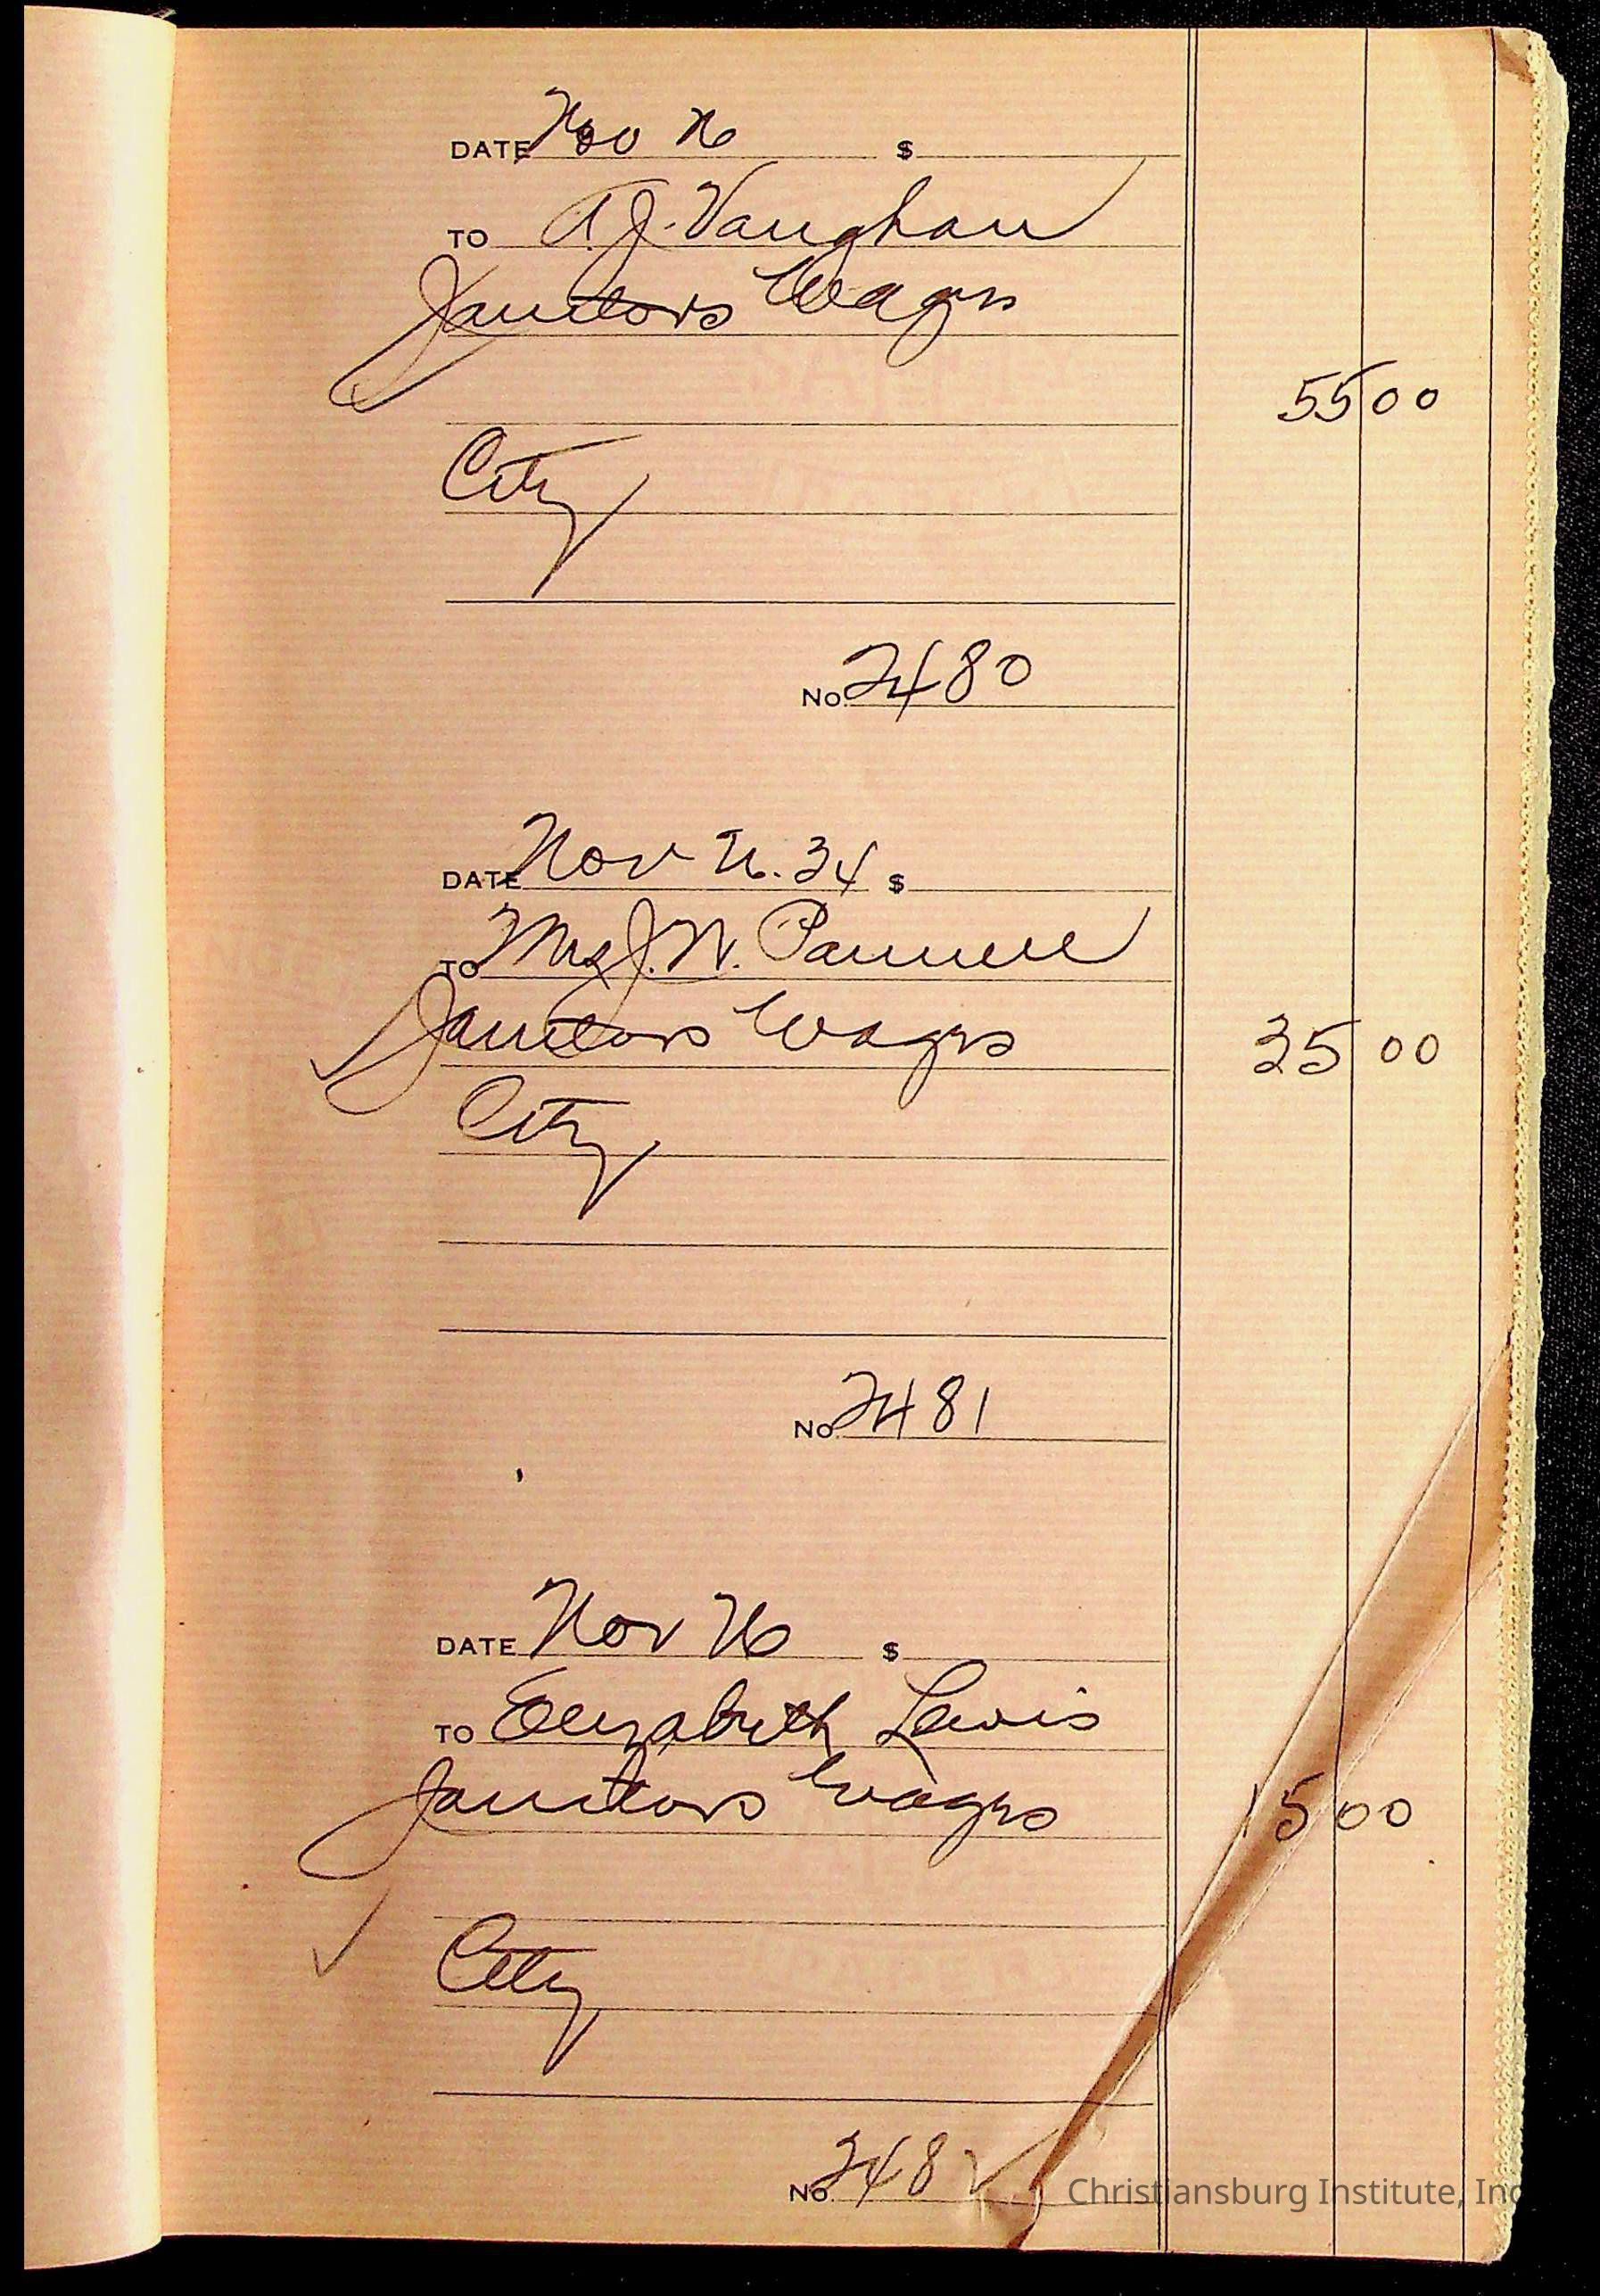 DATE Nov 26 $
TO A. J. Vaughan
Janitors Wages
55 00
City
No. 2480
DATE Nov 26. 34 $
TO Mrs J. W. Pannell
Janitors Wages
35 00
City
No. 2481
DATE Nov 26 $
TO Elizabeth Lewis
Janitors Wages
15 00
City
No. 2482
Christiansburg Institute, Inc